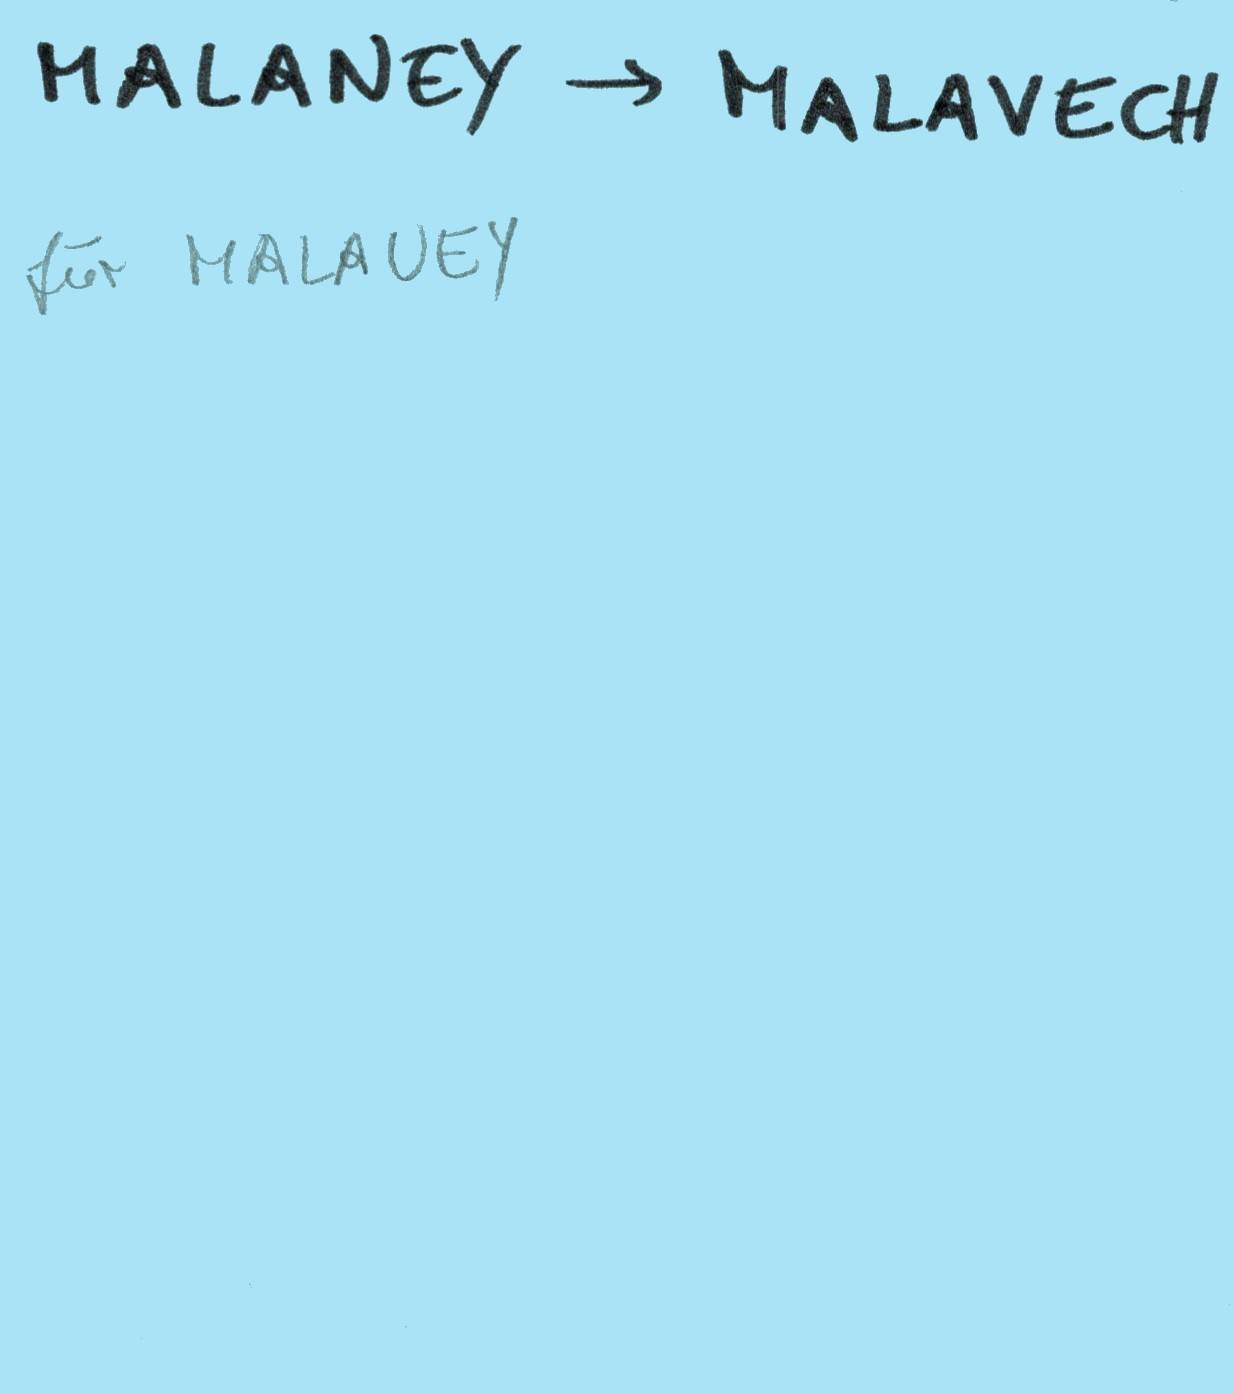 MALANEY → MALAVECH
für MALAUEY